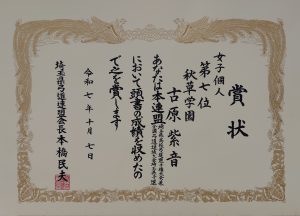 賞状
女子個人
第七位
秋草学園
古原紫音
あなたは本連盟
において頭書の成績を収めたの
で之を賞します
令和七年十月七日
埼玉県弓道連盟会長本橋民夫